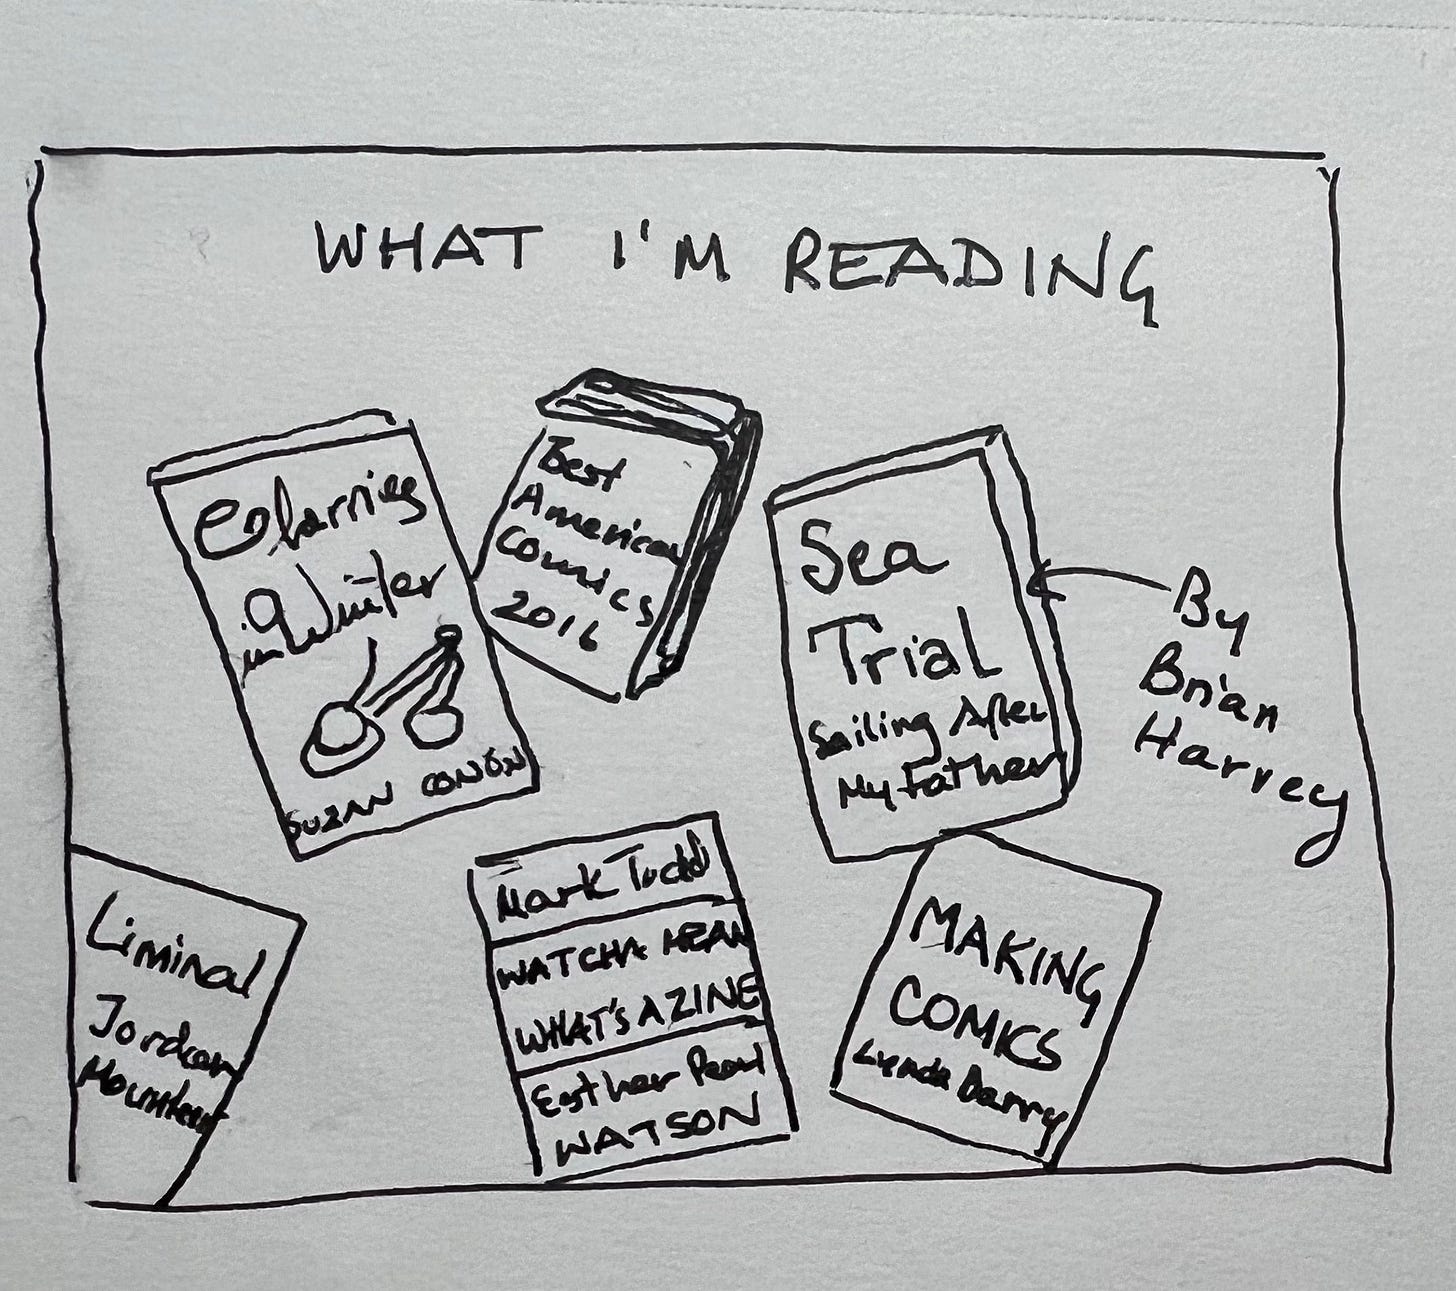 WHAT I'M READING
Cherries
in Winter
SUZAN COLÓN
Best
American
Comics
2016
Sea
Trial
Sailing After
My Father
By
Brian
Harvey
Liminal
Jordan
Mark Todd
WATCHA MEAN
WHAT'S A ZINE
Esther Pearl
WATSON
MAKING
COMICS
Lynda Barry